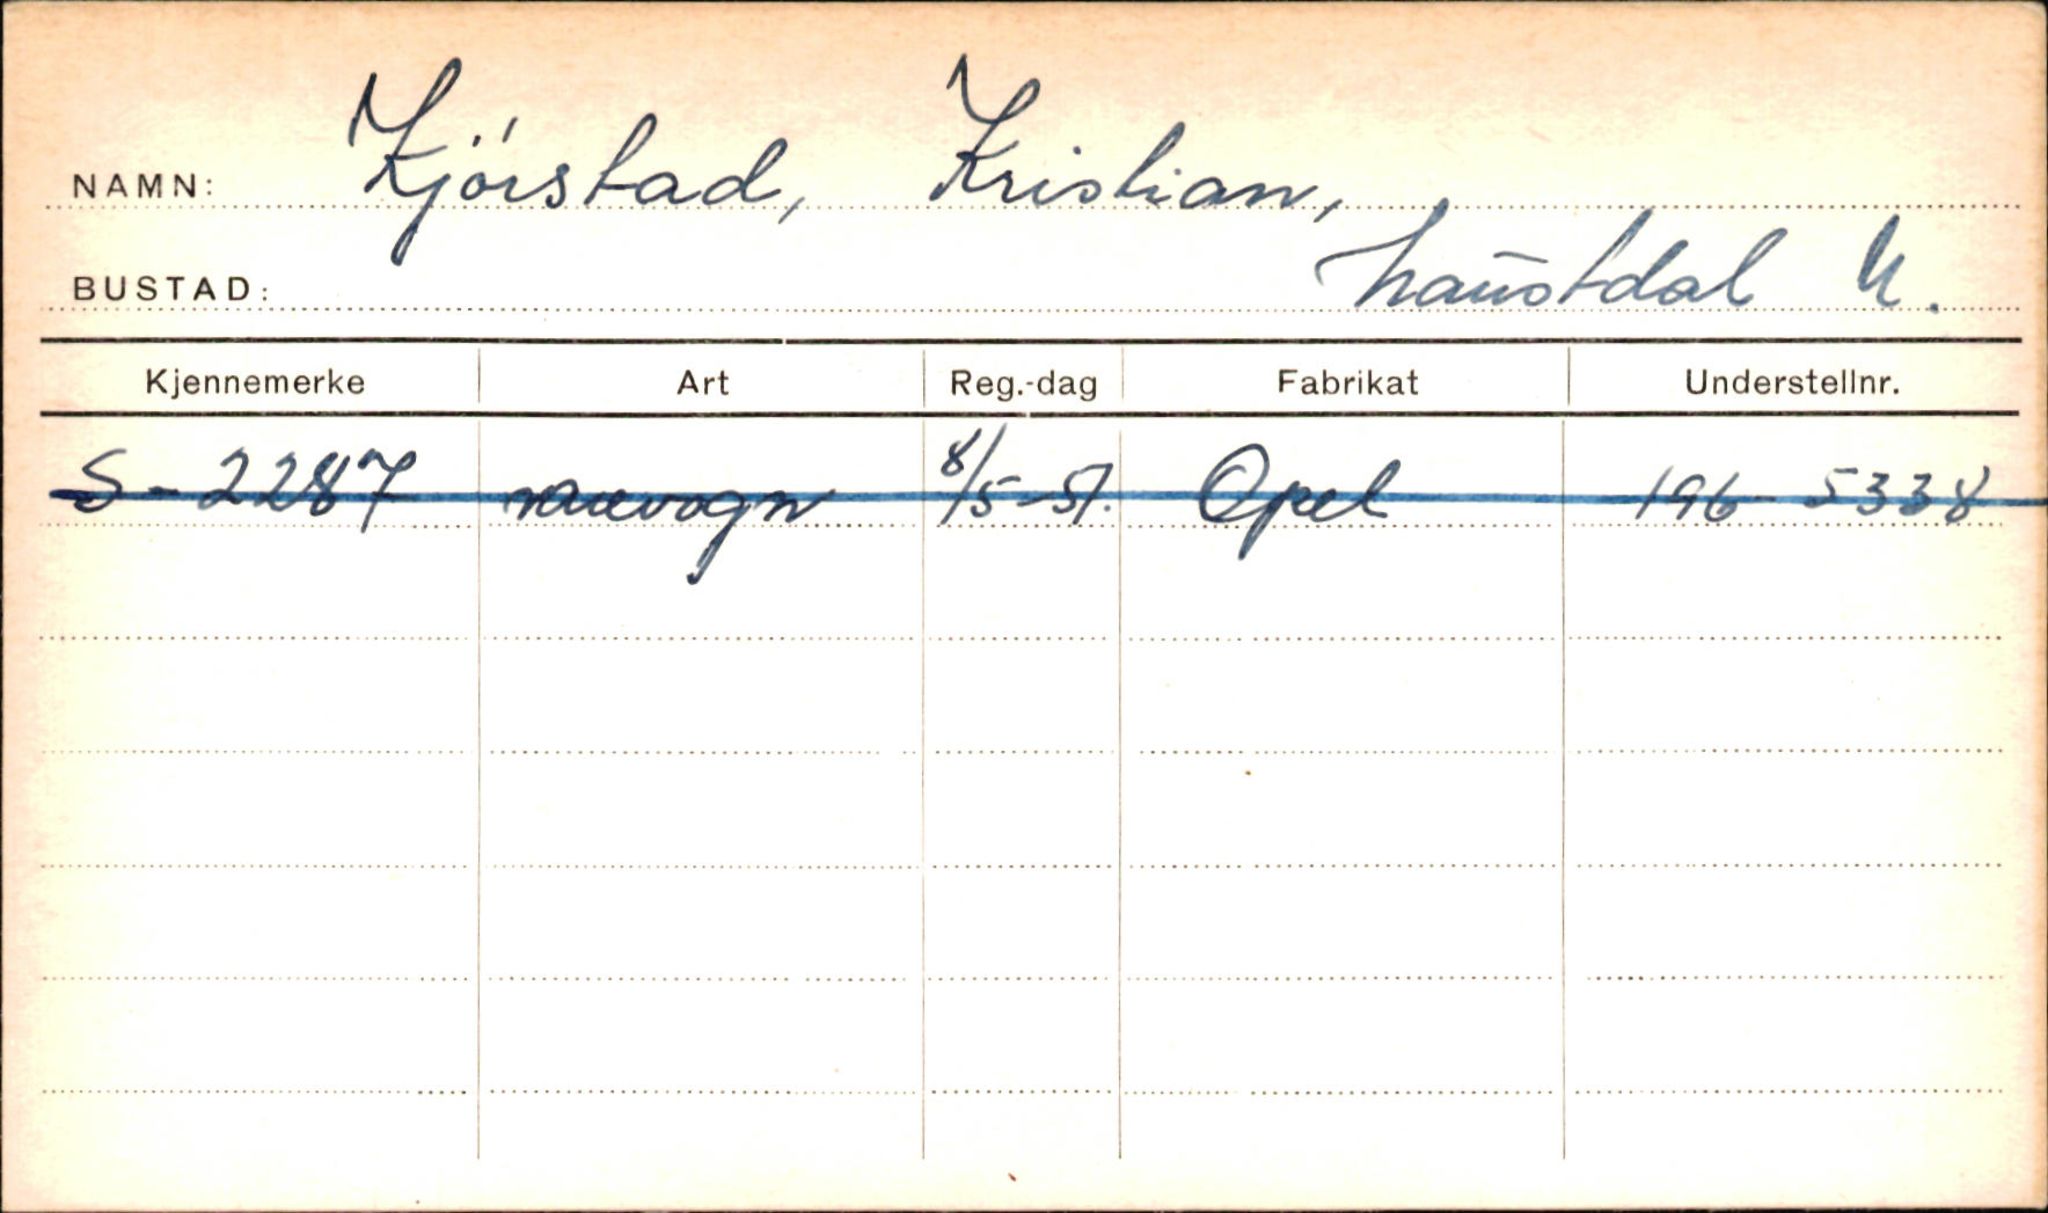 NAMN: Kjörstad, Kristian,
BUSTAD: haustdal N.
Kjennemerke Art Reg.-dag Fabrikat Understellnr.
S-2287 varevogn 8/5-51. Opel 196-5338